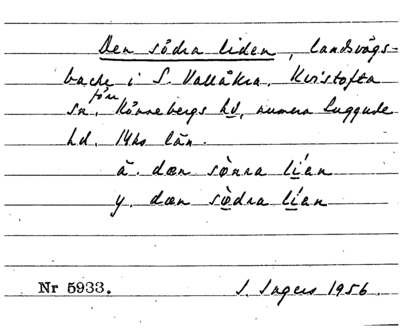 Den södra liden, landsvägs-
backe i S. Vallåkra. Kvistofta
förr
sn, Rönnebergs hd, numera Luggude
hd. Mhs län.
ä. dæn sònra lien
y. dæn sødra lien
Nr 5933. I. Ingers 1956.